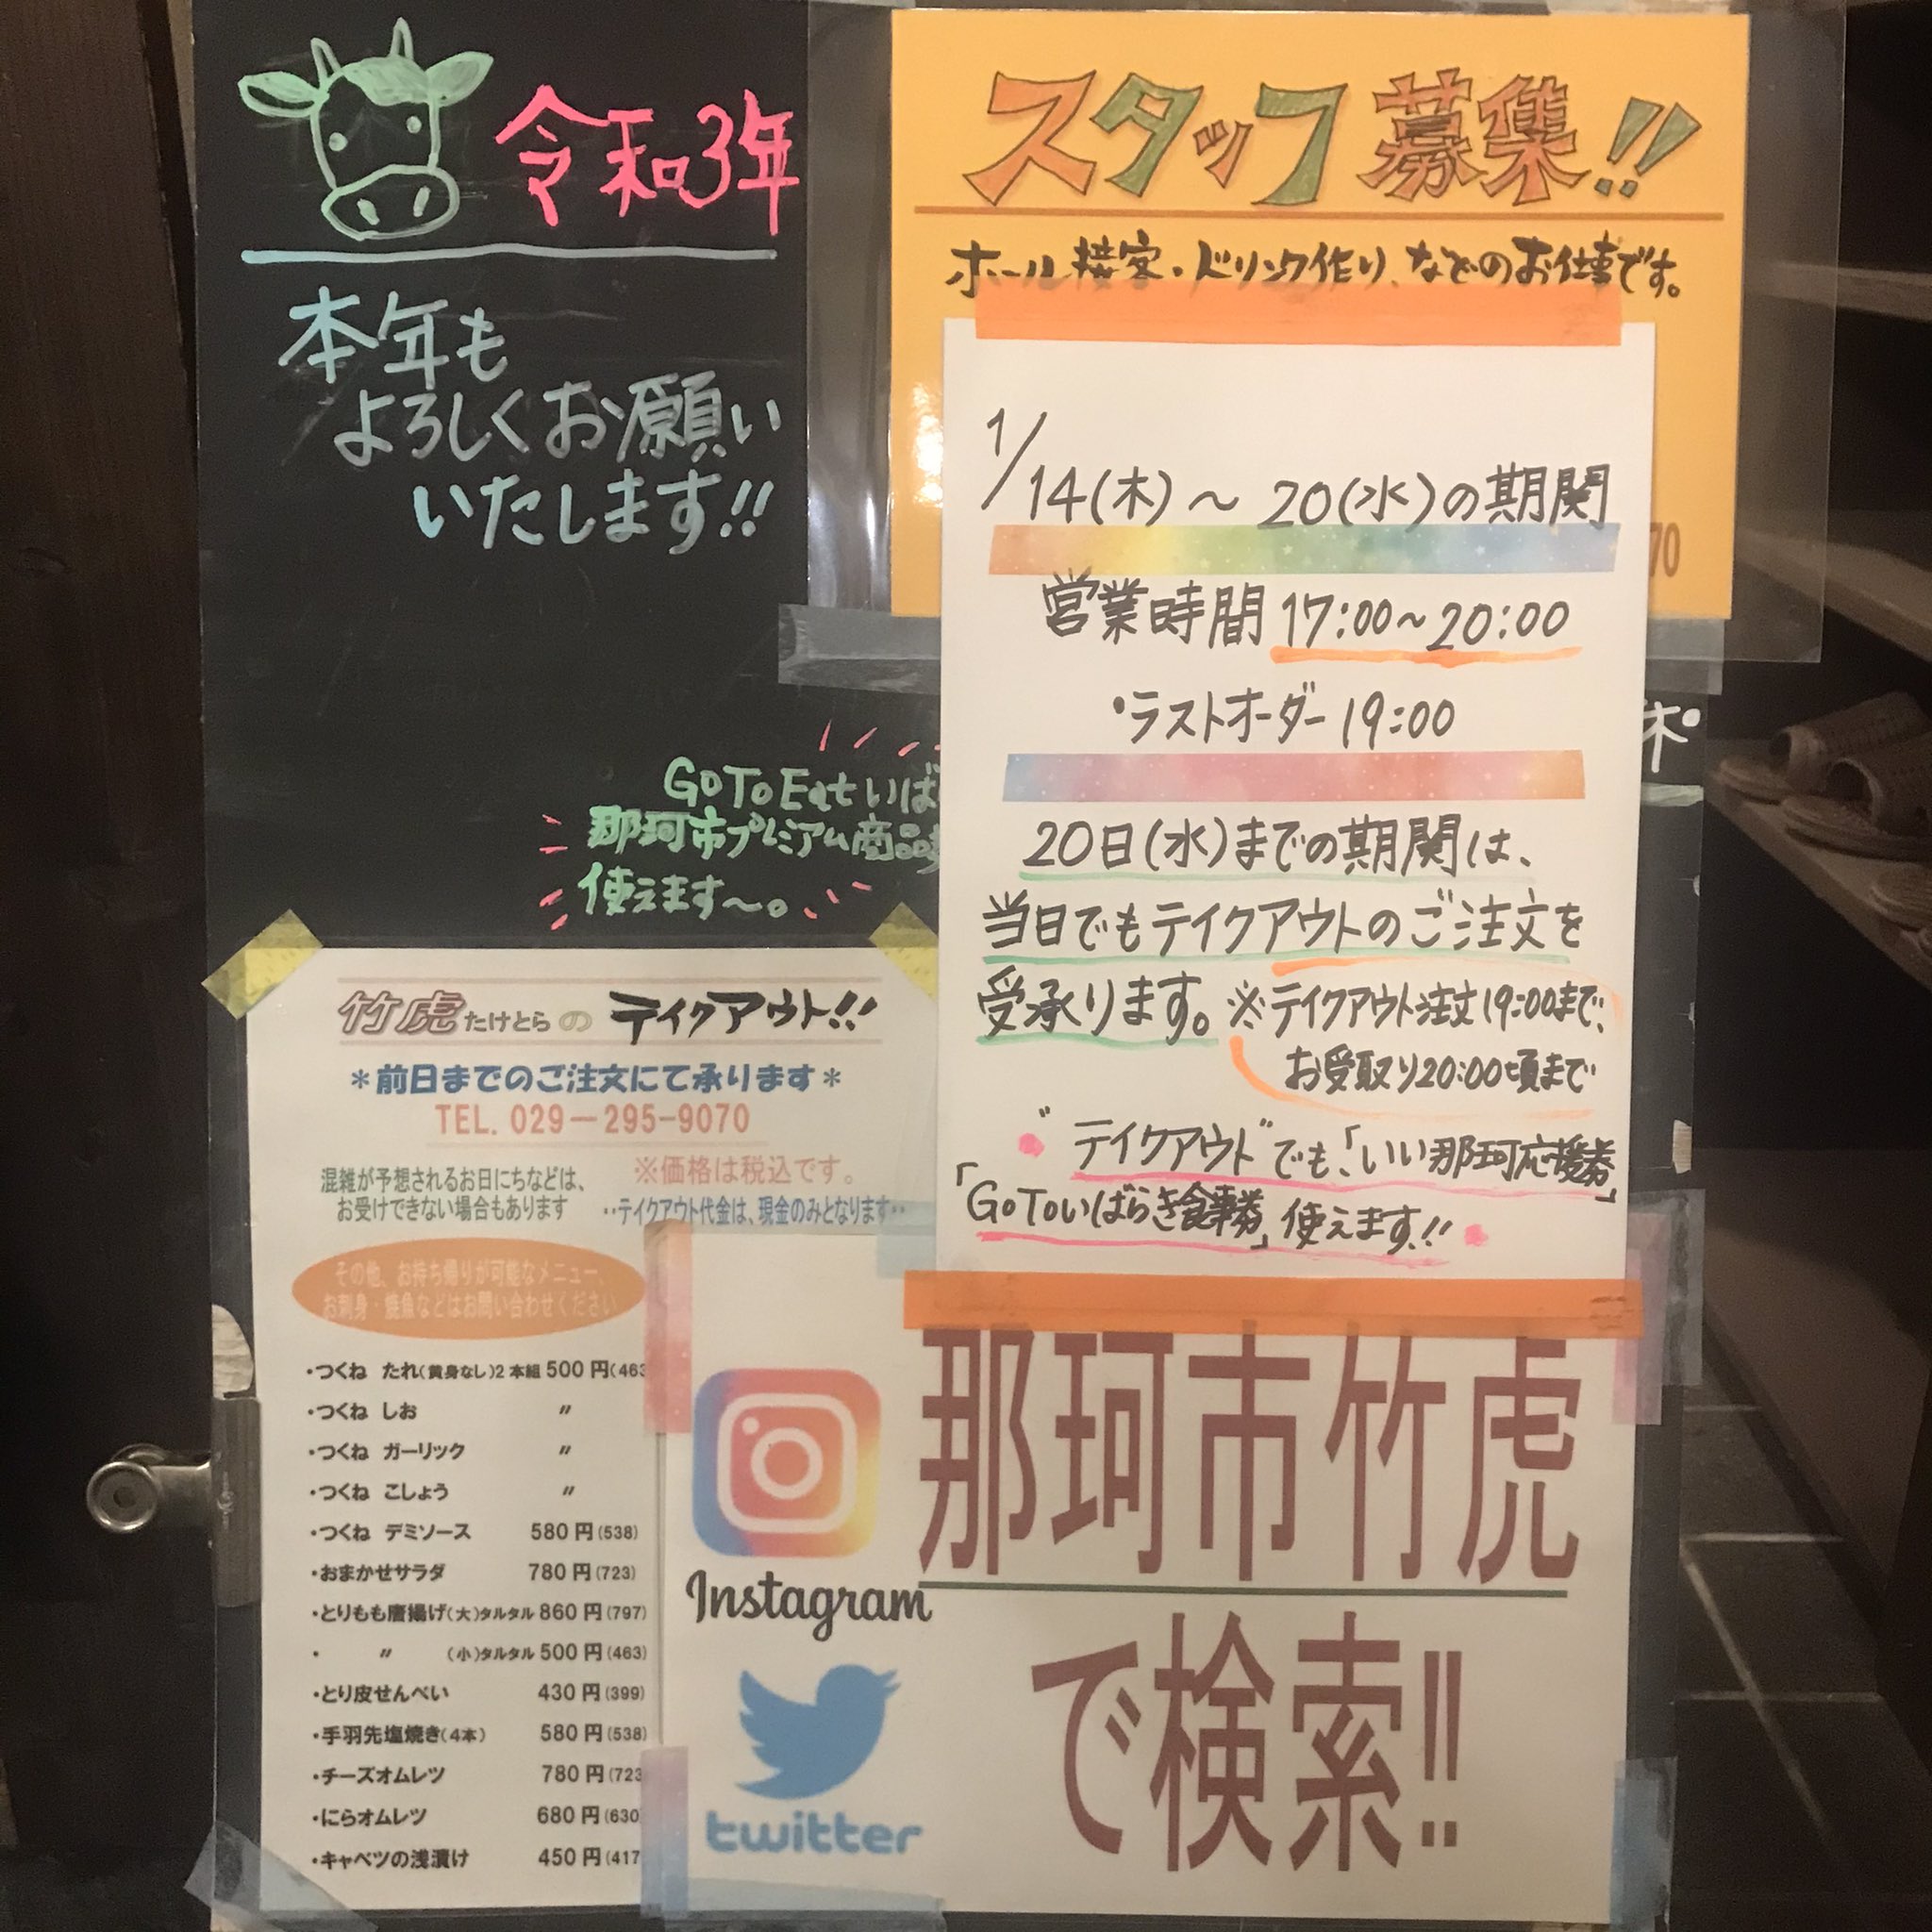 令和3年
本年も
よろしくお願い
いたします!!
GoToEatいば
那珂市プレミアム商品
使えます〜。
スタッフ募集!!
ホール接客・ドリンク作り、などのお仕事です。
70
1/14(木)〜20(水)の期間
営業時間 17:00〜20:00
・ラストオーダー 19:00
20日(水)までの期間は、
当日でもテイクアウトのご注文を
受承ります。※テイクアウト注文19:00まで、
お受取り20:00頃まで
"テイクアウト"でも、「いい那珂応援券」
「GoToいばらき食事券」使えます!!
木
竹虎たけとらの テイクアウト!!
*前日までのご注文にて承ります*
TEL. 029－295-9070
混雑が予想されるお日にちなどは、
お受けできない場合もあります
※価格は税込です。
‥テイクアウト代金は、現金のみとなります‥
その他、お持ち帰りが可能なメニュー、
お刺身・焼魚などはお問い合わせください
・つくね たれ(黄身なし)2本組 500円(463
・つくね しお 〃
・つくね ガーリック 〃
・つくね こしょう 〃
・つくね デミソース 580円(538)
・おまかせサラダ 780円(723)
・とりもも唐揚げ(大)タルタル 860円(797)
・ 〃 (小)タルタル 500円(463)
・とり皮せんべい 430円(399)
・手羽先塩焼き(4本) 580円(538)
・チーズオムレツ 780円(723
・にらオムレツ 680円(630
・キャベツの浅漬け 450円(417
Instagram
twitter
那珂市竹虎
で検索!!